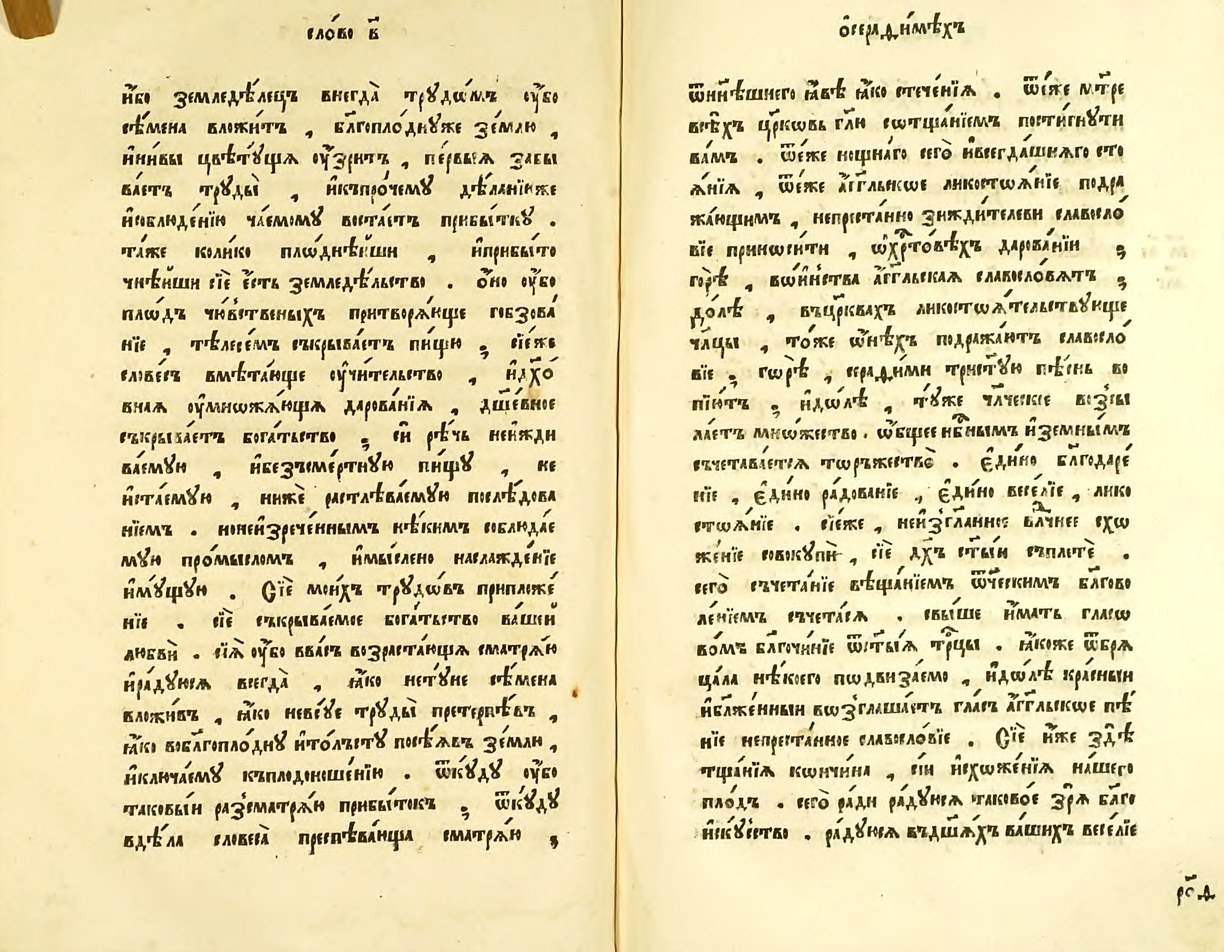 сло́во в҃
и҆́бо земледѣ́лецъ внегда̀ трꙋдѡ́мъ ᲂу҆́бо
сѣ́мена вложи́тъ , бл҃гопло́днꙋже зе́млю ,
и҆ни́вы цвѣтꙋ́щѧ ᲂу҆́зритъ , пе́рвыѧ забы
ва́етъ трꙋды̀ , и҆къпро́чемꙋ дѣ́ланїюже
и҆соблюде́нїю ча́емомꙋ воста́етъ прибы́ткꙋ .
та́же коли́ко плѡднѣ́йши , и҆прибы́то
чнѣ́йши сїѐ є҆́сть земледѣ́льство . ѻ҆́но ᲂу҆́бо
пло́дъ чю́вственыхъ притворѧ́юще гобзова́
нїе , тѣлесе́мъ съкрыва́етъ пи́щю ; сїе́же
слове́съ вмѣта́юще ᲂу҆чи́тельство , и҆дх҃о́
вная ᲂу҆множа́ющѧ дарова́нїѧ , дш҃е́вное
съкрыва́етъ бога́тьство ; си́ю рѣ́чь неижди
ва́емꙋю , и҆безъсме́ртнꙋю пи́щꙋ , не
и҆ста́емꙋю , нижѐ растлѣва́емꙋю послѣ́дова
нїемъ . нонеизрече́ннымъ нѣ́кимъ соблюда́е
мꙋю про́мысломъ , и҆мы́слено наслажде́нїе
и҆мꙋ́щꙋю . Сїѐ мои́хъ трꙋдѡ́въ приложе́
нїе . сїѐ съкрыва́емое бога́тьство ва́шей
любвѝ . сїѧ̀ ᲂу҆́бо вва́съ возраста́ющѧ сматрѧ́ю
и҆ра́дꙋюсѧ всегда̀ , ꙗ҆́ко нетꙋ́не сѣ́мена
вложи́въ , ꙗ҆́ко невсꙋ́е трꙋды̀ претерпѣ́въ ,
ꙗ҆́ко вобл҃гопло́днꙋ и҆то́лъстꙋ посѣ́ѧвъ зе́млю ,
и҆ключа́емꙋ къплодоноше́нїю . ѿкꙋ́дꙋ ᲂу҆́бо
таковы́и разъсматрѧ́ю прибы́токъ ; ѿкꙋ́дꙋ
вдѣ́ла словеса̀ преспѣва́юща сматрѧ́ю ;
ѡ҆серафи́мѣхъ
ѿнн҃ѣшнего ꙗ҆́вѣ ꙗ҆́ко стече́нїѧ . ѿе́же мт҃ре
всѣ́хъ цр҃ковь гл҃ю сотща́нїемъ пости́гнꙋти
ва́мъ . ѿе́же нощна́го сего̀ и҆всегда́шнѧго сто
ѧ́нїѧ , ѿе́же а҆́гг҃льское ликостоѧ́нїе подра
жа́ющимъ , непреста́нно зижди́телеви славосло́
вїе приноси́ти , ѽхр҃то́вѣхъ дарова́нїи ;
горѣ̀ , во́иньства а҆́гг҃льская славосло́вѧтъ ;
до́лѣ , въцр҃квахъ ликостоѧ́тельствꙋюще
чл҃цы , то́же ѻ҆́нѣхъ подража́ютъ славосло́
вїе ; горѣ̀ , серафи́ми трист҃ꙋ́ю пѣ́снь во
пїю́тъ ; и҆до́лѣ , тꙋ́же чл҃ческїе возъсы
ла́етъ мно́жество . ѻ҆́бщее нб҃нымъ и҆земны́мъ
съчетава́етсѧ торжество̀ . є҆ди́но бл҃годаре́
нїе , є҆ди́но ра́дованїе , є҆ди́но весе́лїе , лико
стоѧ́нїе . сїе́же , неизъгл҃анное влⷣчнее схо
жде́нїе совокупѝ , сїѐ дх҃ъ ст҃ы́и съплетѐ .
сего̀ съчета́нїе вѣща́нїемъ ѻ҆те́ческимъ бл҃гово
ле́нїемъ съчета́сѧ . свы́ше и҆́мать гласо
во́мъ бл҃гочи́нїе ѿст҃ы́ѧ трⷪ҇цы . ꙗ҆́коже ѿбрѧ
ца́ла нѣ́коего подвиза́емо , и҆до́лѣ кра́сныи
и҆бл҃же́нныи возъглаша́етъ гла́съ а҆́гг҃льское пѣ́
нїе непреста́нное славосло́вїе . Сїѐ и҆́же здѣ̀
тща́нїѧ кончи́на , сїи исхожде́нїѧ на́шего
пло́дъ . сего̀ ра́ди ра́дꙋюсѧ таково́е зрѧ̀ бл҃го
и҆скꙋ́ство . ра́дꙋюсѧ въдш҃ѧ́хъ ва́шихъ весе́лїе